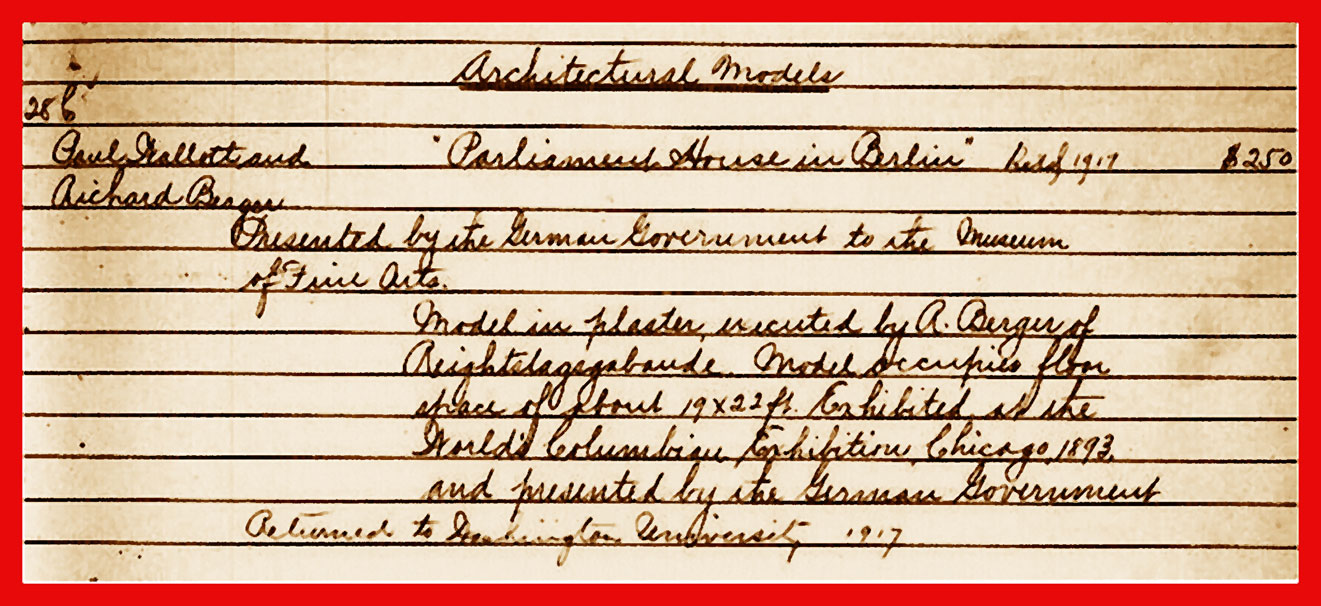 Architectural Models
286
Paul Wallott and "Parliament House in Berlin" Ret'd 1917 $250
Richard Berger
Presented by the German Government to the Museum
of Fine Arts.
Model in plaster, executed by R. Berger of
Reightstagsgabaude. Model occupies floor
space of about 19x22 ft. Exhibited at the
World's Columbian Exhibition, Chicago, 1893,
and presented by the German Government
Returned to Washington University 1917